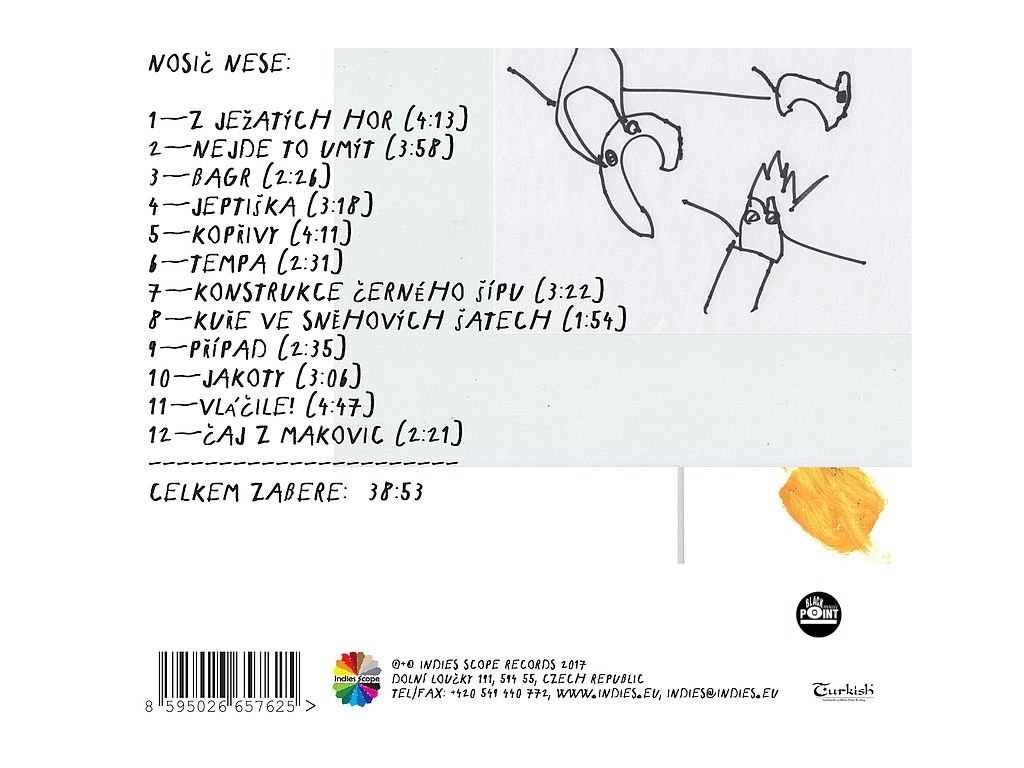 NOSIČ NESE:
1—Z JEŽATÝCH HOR (4:13)
2—NEJDE TO UMÝT (3:58)
3—BAGR (2:26)
4—JEPTIŠKA (3:18)
5—KOPŘIVY (4:11)
6—TEMPA (2:31)
7—KONSTRUKCE ČERNÉHO ŠÍPU (3:22)
8—KUŘE VE SNĚHOVÝCH ŠATECH (1:54)
9—PŘÍPAD (2:35)
10—JAKOTY (3:06)
11—VLÁČILE! (4:47)
12—ČAJ Z MAKOVIC (2:21)
----------------------
CELKEM ZABERE: 38:53
BLACK
POINT
Indies Scope
℗+© INDIES SCOPE RECORDS 2017
DOLNÍ LOUČKY 191, 594 55, CZECH REPUBLIC
TEL/FAX: +420 549 440 772, WWW.INDIES.EU, INDIES@INDIES.EU
8 595026 657625 >
Turkish